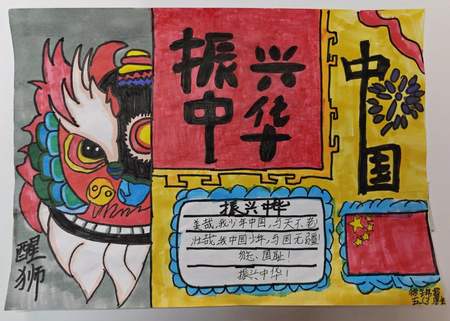 振兴
中华
中国
醒狮
振兴中华
美哉,我少年中国,与天不老!
壮哉,我中国少年,与国无疆!
勿忘国耻!
振兴中华!